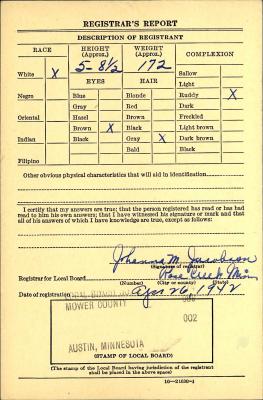 REGISTRAR'S REPORT
DESCRIPTION OF REGISTRANT
RACE HEIGHT (Approx.) WEIGHT (Approx.) COMPLEXION
5-8½ 172
White X Sallow
EYES HAIR Light
Negro Blue Blonde Ruddy X
Gray Red Dark
Oriental Hazel Brown Freckled
Brown X Black Light brown
Indian Black Gray X Dark brown
Bald Black
Filipino
Other obvious physical characteristics that will aid in identification
I certify that my answers are true; that the person registered has read or has had
read to him his own answers; that I have witnessed his signature or mark and that
all of his answers of which I have knowledge are true, except as follows:
Johanna M. Jacobson
(Signature of registrar)
Registrar for Local Board Rose Creek Minn
(Number) (City or county) (State)
Date of registration Apr 26, 1942
MOWER COUNTY
002
AUSTIN, MINNESOTA
(STAMP OF LOCAL BOARD)
(The stamp of the Local Board having jurisdiction of the registrant
shall be placed in the above space)
16—21630-1